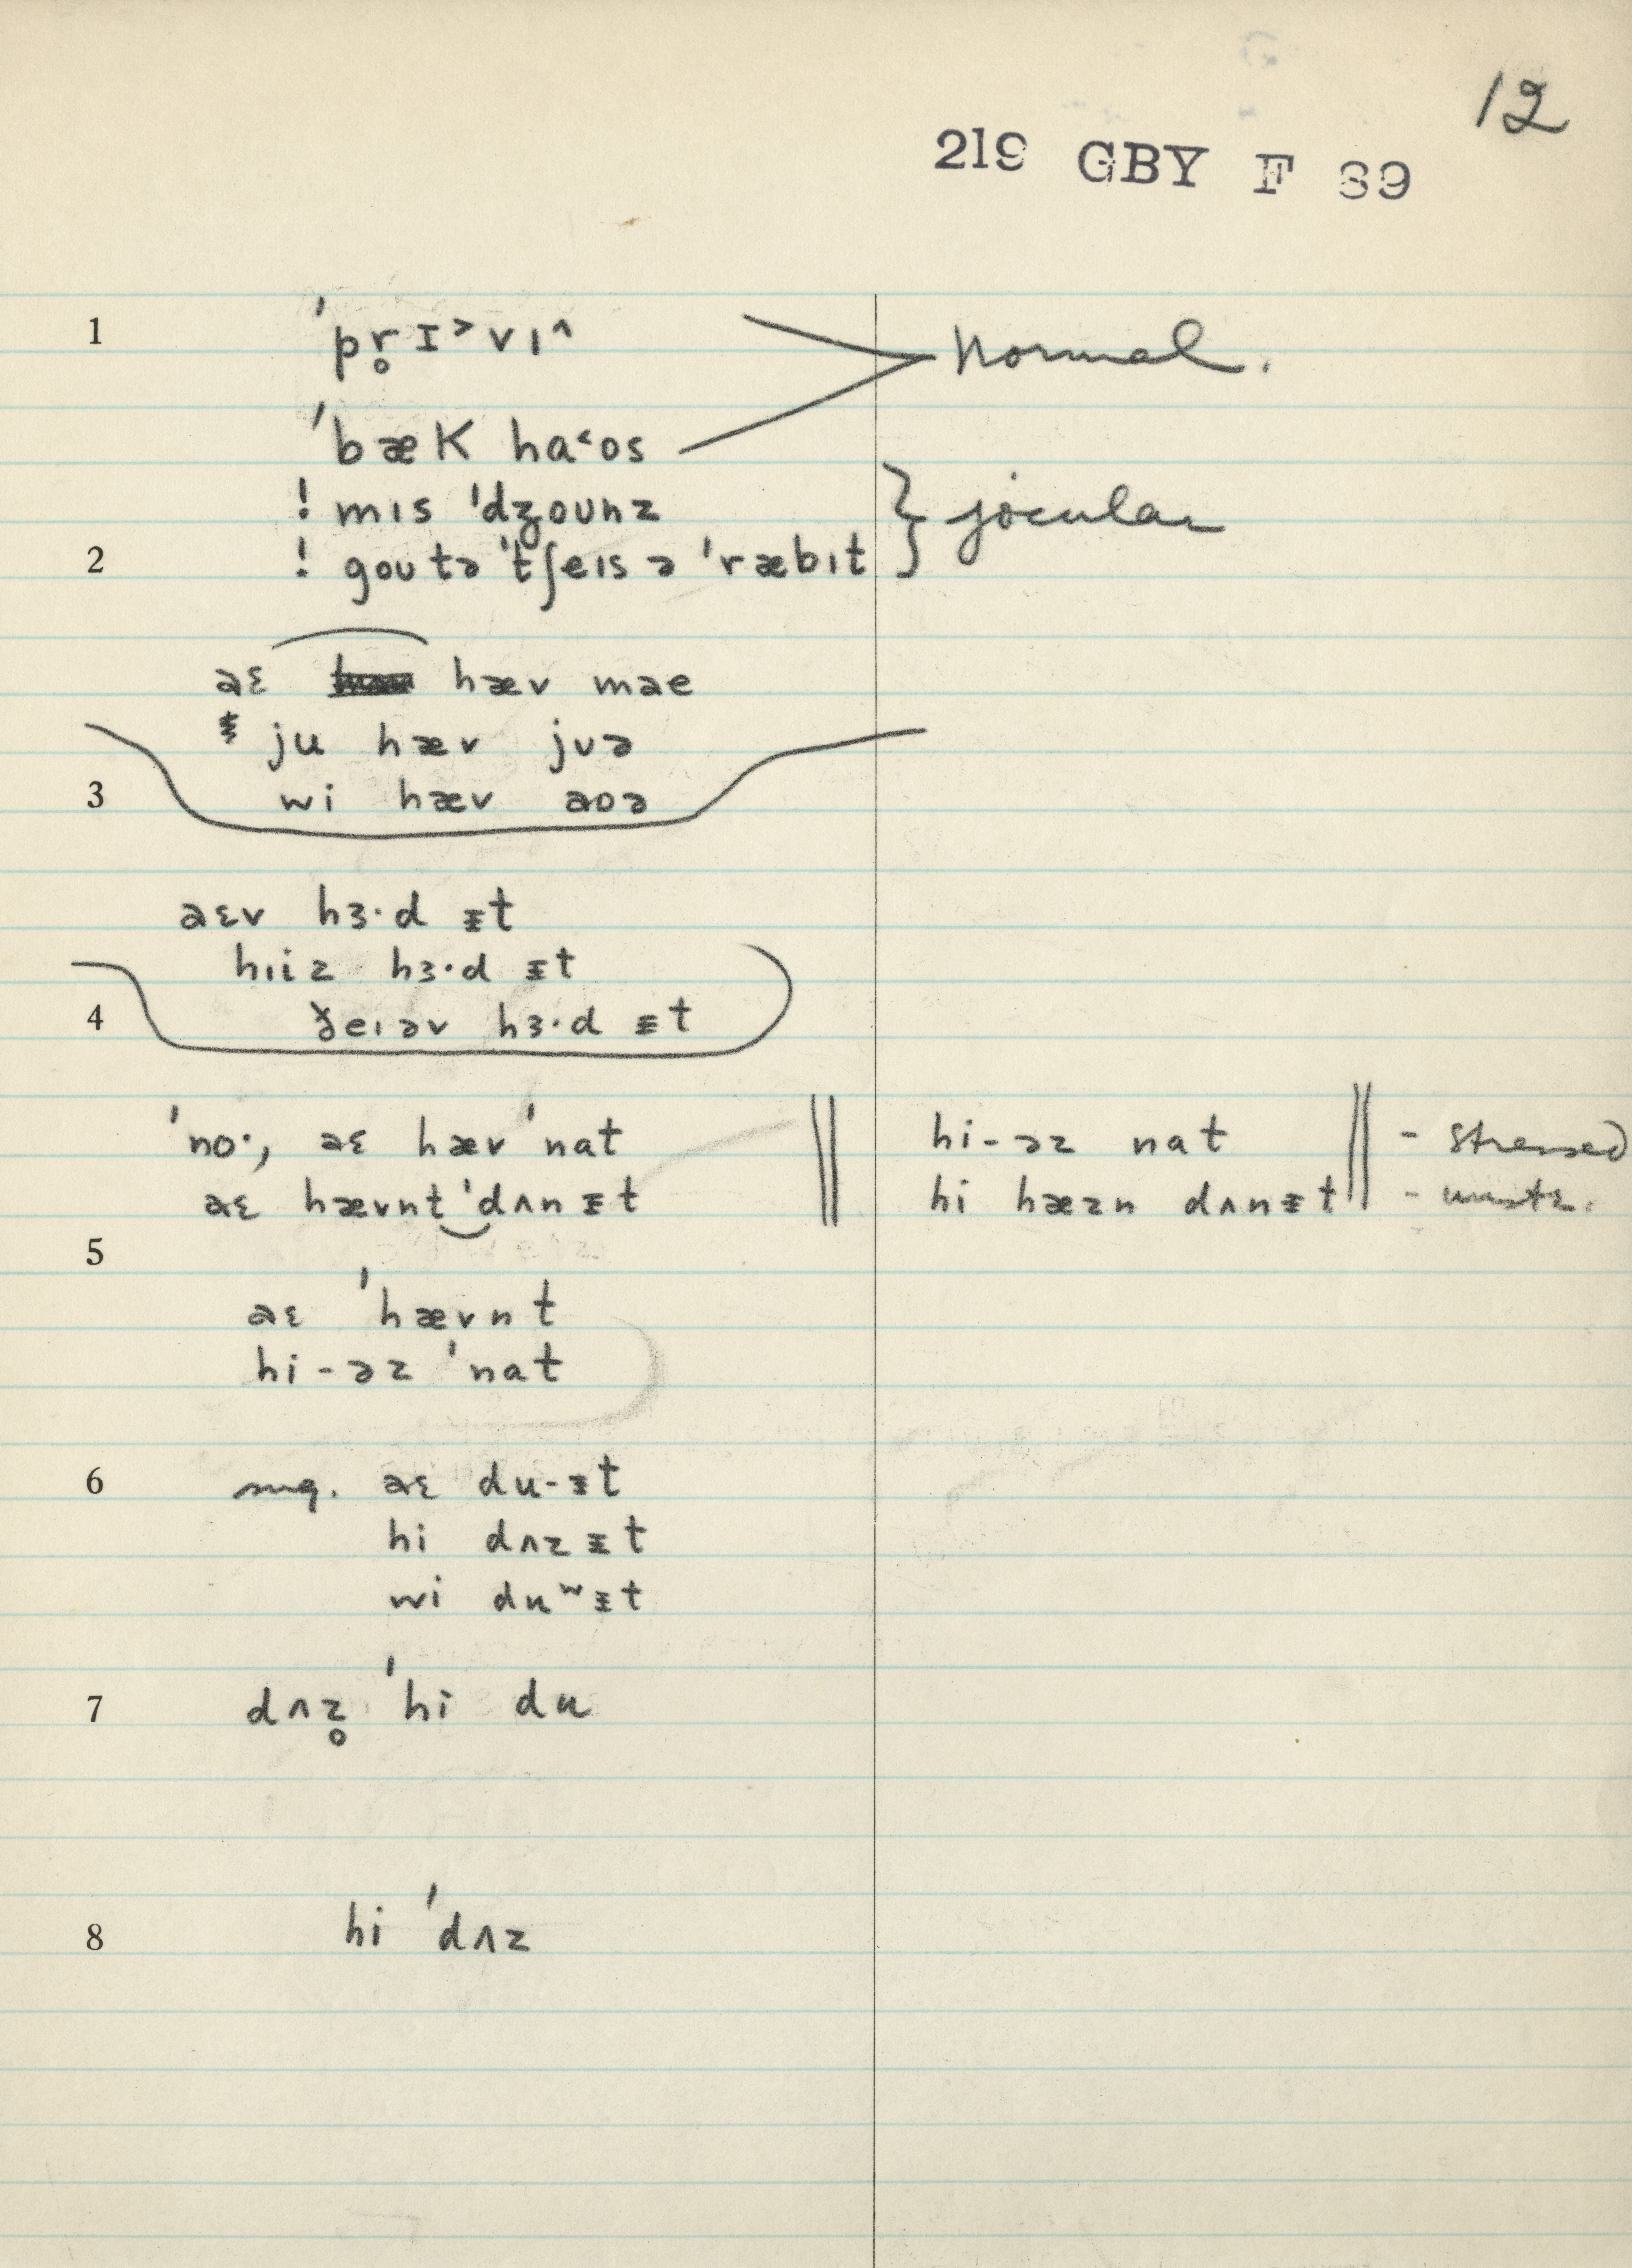 12
219 GBY F 39
1 ˈpr̥ɪ˃vı^ Normal.
ˈbæk ha˂os
! mıs ˈdʒounz } jocular
2 ! gou tə ˈtʃeıs ə ˈræbıt
aɛ hæv mae
ju hæv jʊə
3 wi hæv aoə
aɛv hɜ·d ᵻt
hıiz hɜ·d ᵻt
4 ðeıəv hɜ·d ᵻt
ˈno·, aɛ hæv ˈnat || hi-əz nat || - stressed
aɛ hævnt‿ˈdʌnᵻt || hi hæzn dʌnᵻt || - unstr.
5
aɛ ˈhævnt
hi-əz ˈnat
6 sug. aɛ du-ᵻt
hi dʌzᵻt
wi duʷᵻt
7 dʌz̥ ˈhi du
8 hi ˈdʌz